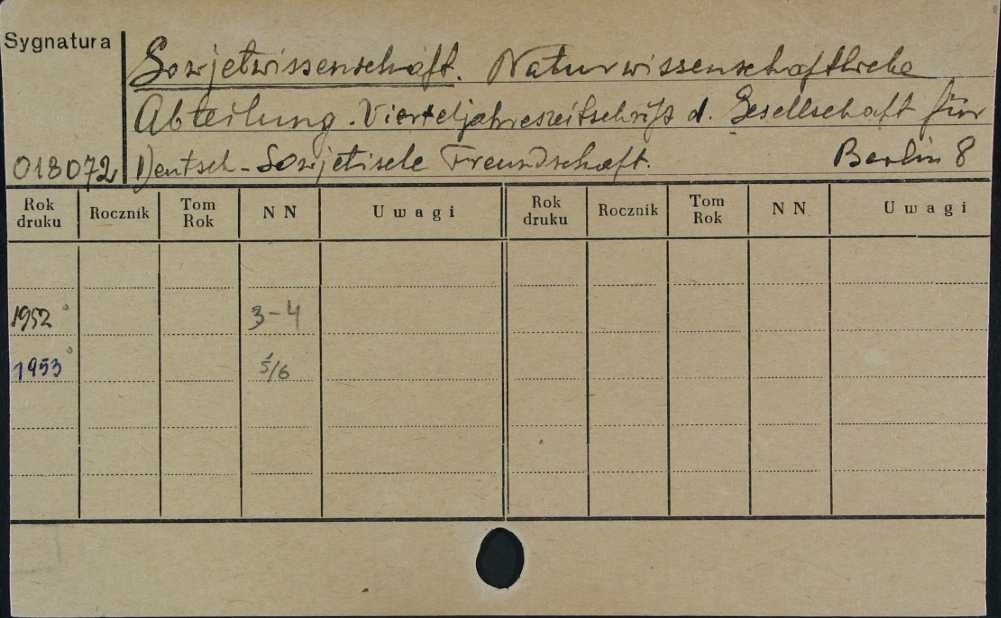 Sygnatura
Sowjetwissenschaft. Naturwissenschaftliche
Abteilung. Vierteljahreszeitschrift d. Gesellschaft für
018072 Deutsch-Sowjetische Freundschaft. Berlin 8
Rok druku Rocznik Tom Rok N N Uwagi Rok druku Rocznik Tom Rok N N Uwagi
1952 3-4
1953 5/6